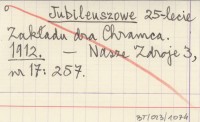 Jubileuszowe 25-lecie
Zakładu dra Chramca.
1912. — Nasze Zdroje 3,
nr 17: 257.
BT/013/1074